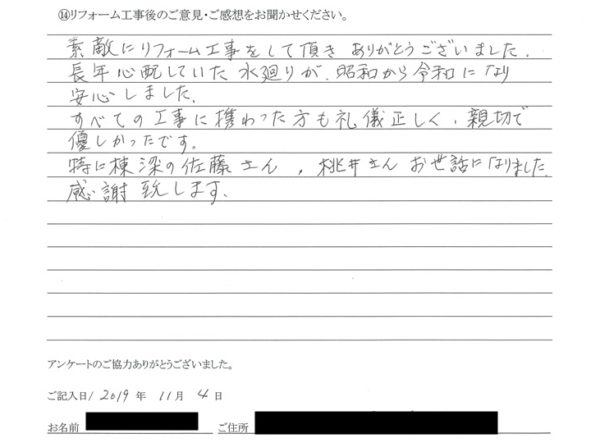 ⑭リフォーム工事後のご意見・ご感想をお聞かせください。
素敵にリフォーム工事をして頂き ありがとうございました.
長年心配していた水廻りが、昭和から令和になり
安心しました.
すべての工事に携わった方も礼儀正しく、親切で
優しかったです。
特に棟梁の佐藤さん , 桃井さん お世話になりました.
感謝致します.
アンケートのご協力ありがとうございました。
ご記入日/ 2019 年 11月 4 日
お名前 ご住所